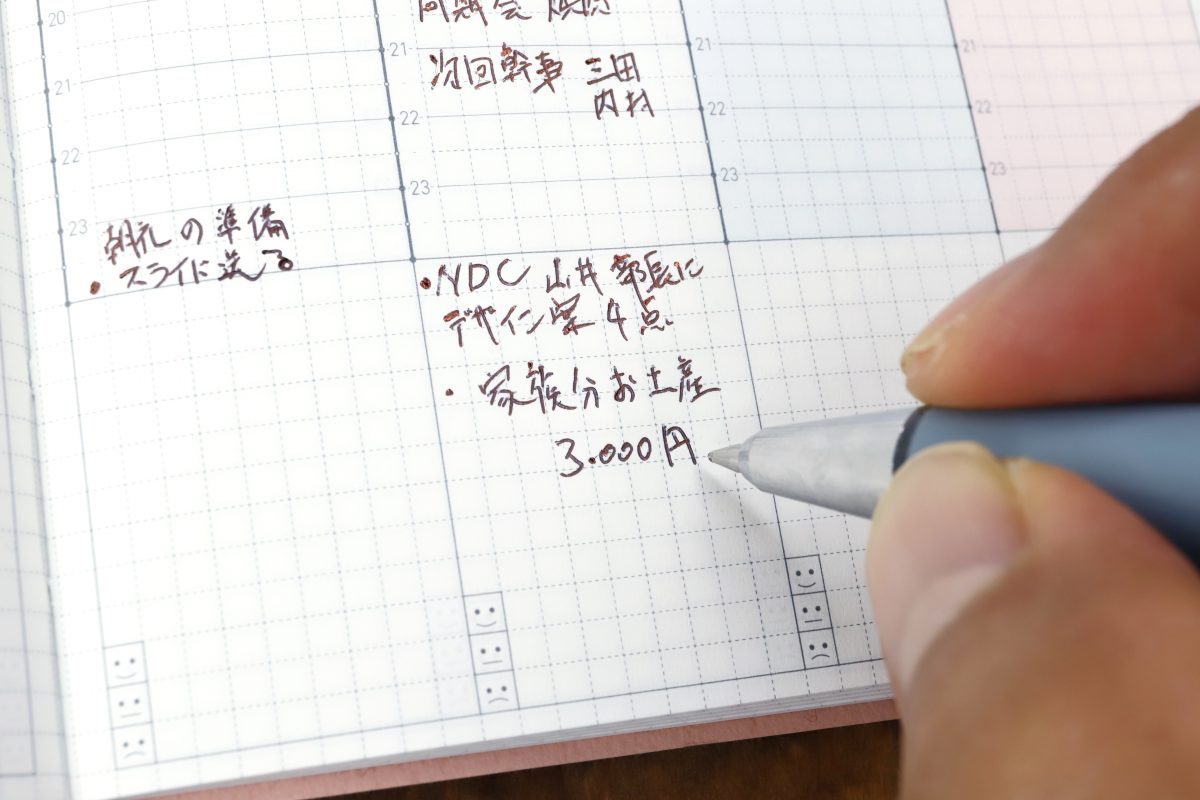 20
21
22
23
朝礼の準備
・スライド送る
21
次回幹事 三田
内村
22
23
・NDC 山井部長に
デザイン案4点
・家族分お土産
3.000円
21
22
23
21
22
23